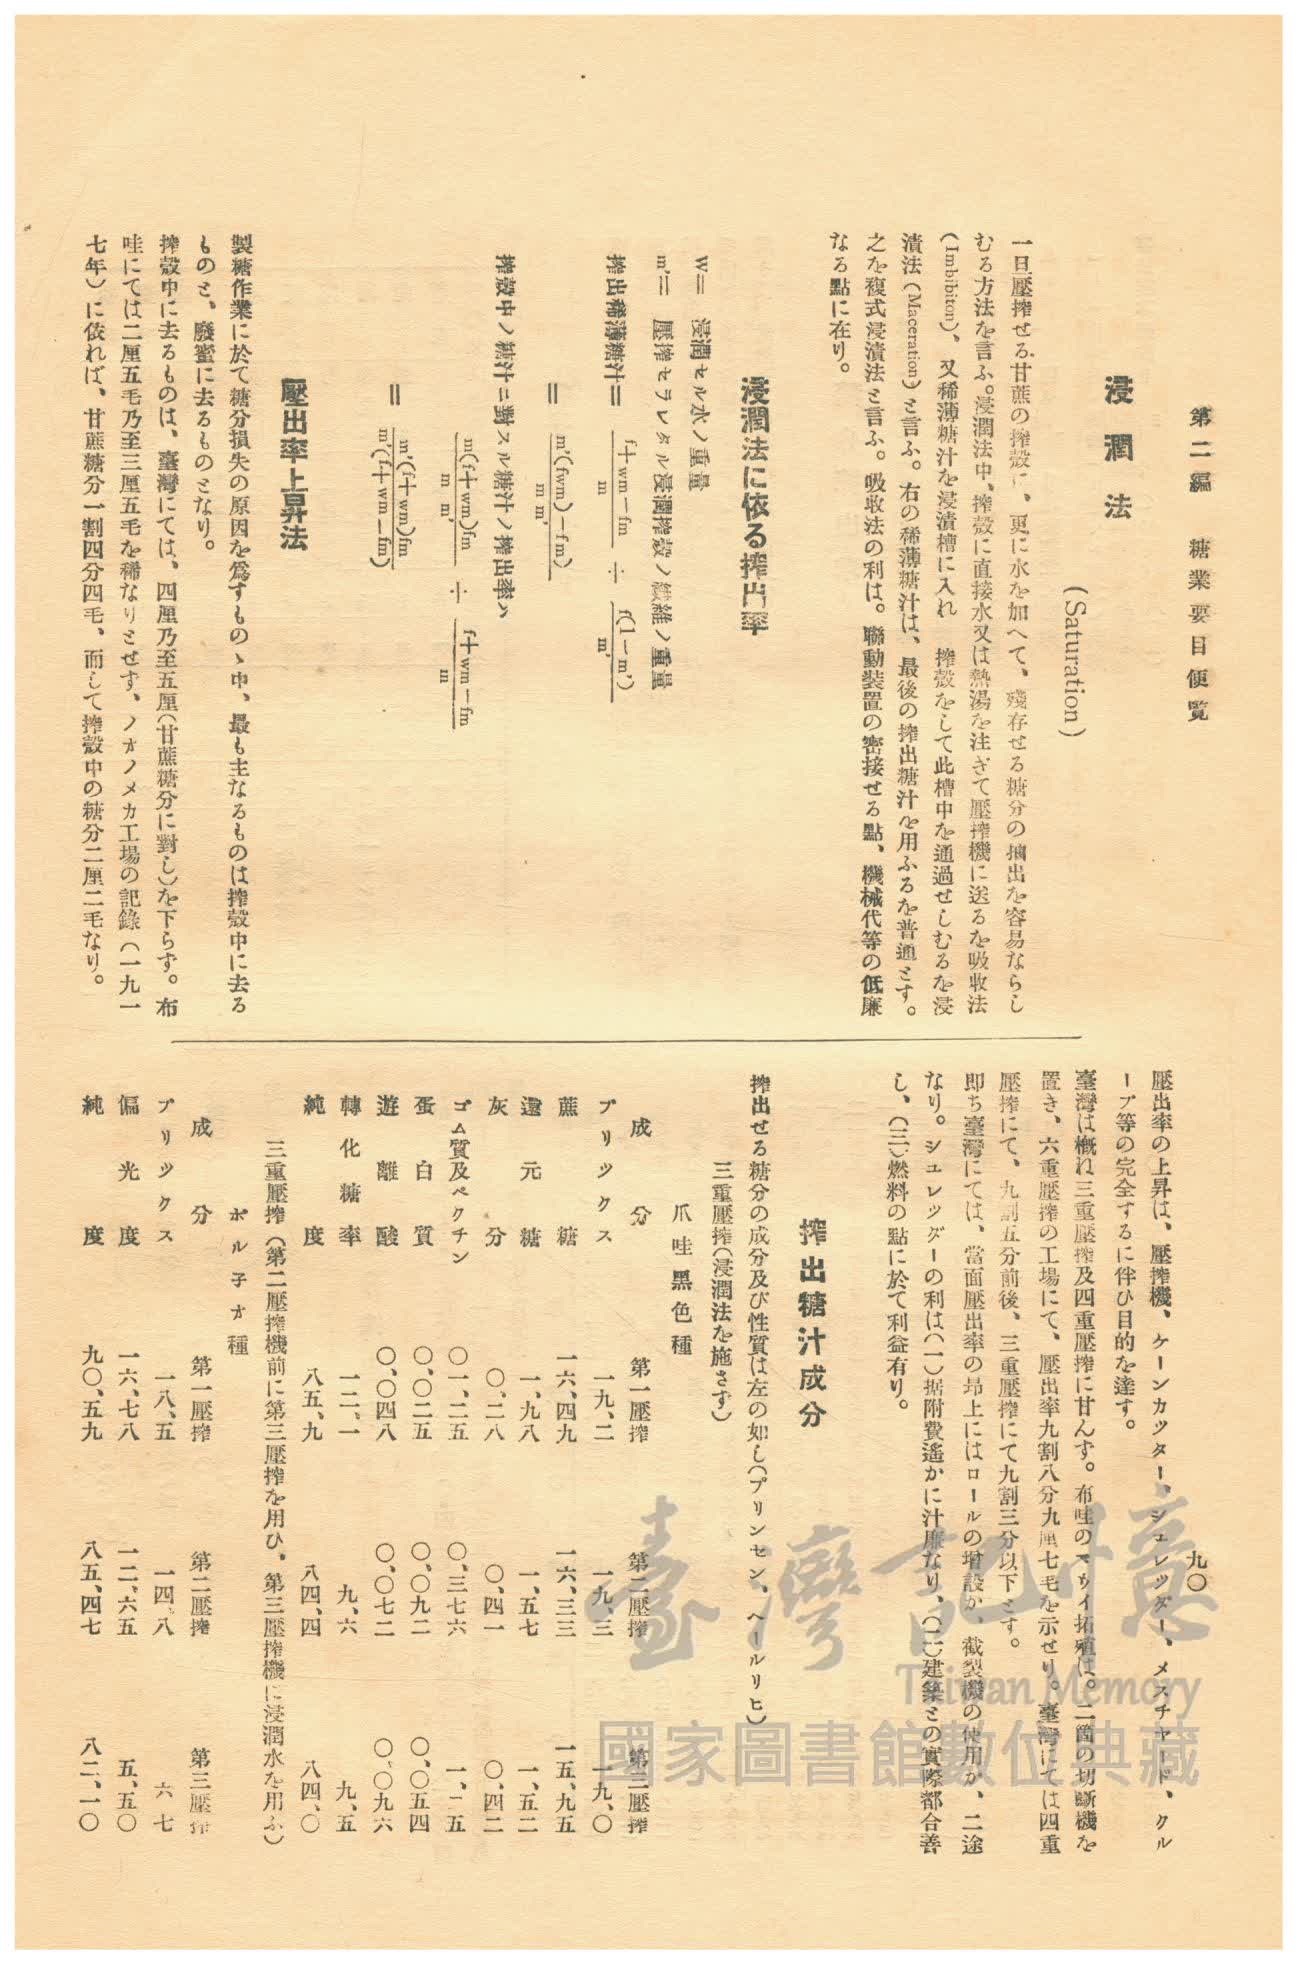 第二編　糖業要目便覧
九〇
浸潤法
(Saturation)
一旦壓搾せる甘蔗の搾殻に、更に水を加へて、殘存せる糖分の抽出を容易ならし
むる方法を言ふ。浸潤法中、搾殻に直接水又は熱湯を注ぎて壓搾機に送るを吸收法
(Imbibiton)、又稀薄糖汁を浸漬槽に入れ　搾殻をして此槽中を通過せしむるを浸
漬法(Maceration)と言ふ。右の稀薄糖汁は、最後の搾出糖汁を用ふるを普通とす。
之を複式浸漬法と言ふ。吸收法の利は。聯動裝置の密接せる點、機械代等の低廉
なる點に在り。
浸潤法に依る搾出率
W＝　浸潤セル水ノ重量
m'＝　壓搾セラレタル浸潤搾殻ノ纖維ノ重量
搾出稀薄糖汁＝ f十wm－fm / m ÷ f(1－m') / m'
＝ m'(fwm)－fm) / m m'
搾殻中ノ糖汁ニ對スル糖汁ノ搾出率ハ
m(f十wm)fm / m m' ÷ f十wm－fm / m
＝ m'(f十wm)fm / m'(f十wm－fm)
壓出率上昇法
製糖作業に於て糖分損失の原因を爲すものゝ中、最も主なるものは搾殻中に去る
ものと、廢蜜に去るものとなり。
搾殻中に去るものは、臺灣にては、四厘乃至五厘(甘蔗糖分に對し)を下らす。布
哇にては二厘五毛乃至三厘五毛を稀なりとせず、ノオノメカ工場の記錄(一九一
七年)に依れば、甘蔗糖分一割四分四毛、而して搾殻中の糖分二厘二毛なり。
壓出率の上昇は、壓搾機、ケーンカツター、シュレツダー、メスチャード、クル
ープ等の完全するに伴ひ目的を達す。
臺灣は槪ね三重壓搾及四重壓搾に甘んす。布哇のマウイ拓殖は。二箇の切斷機を
置き、六重壓搾の工場にて、壓出率九割八分九厘七毛を示せり。臺灣にては四重
壓搾にて、九割五分前後、三重壓搾にて九割三分以下とす。
即ち臺灣にては、當面壓出率の昻上にはロールの増設か、截製機の使用か、二途
なり。シュレツダーの利は(一)据附費遙かに汁廉なり、(二)建築との實際都合善
し、(三)燃料の點に於て利益有り。
搾出糖汁成分
搾出せる糖分の成分及び性質は左の如し(プリンセン、ヘールリヒ)
三重壓搾(浸潤法を施さす)
爪哇黑色種
成分　第一壓搾　第二壓搾　第三壓搾
ブリツクス　一九、二　一九、三　一九、〇
蔗糖　一六、四九　一六、三三　一五、九五
還元糖　一、九八　一、五七　一、五二
灰分　〇、二八　〇、四一　〇、四二
ゴム質及ペクチン　〇一、二五　〇、三七六　一、二五
蛋白質　〇、〇二五　〇、〇九二　〇、〇五四
遊離酸　〇、〇四八　〇、〇七二　〇、〇九六
轉化糖率　一二、一　九、六　九、五
純度　八五、九　八四、四　八四、〇
三重壓搾(第二壓搾機前に第三壓搾を用ひ、第三壓搾機に浸潤水を用ふ)
ボル子オ種
成分　第一壓搾　第二壓搾　第三壓搾
ブリツクス　一八、五　一四、八　六　七
偏光度　一六、七八　一二、六五　五、五〇
純度　九〇、五九　八五、四七　八二、一〇
臺灣記憶
Taiwan Memory
國家圖書館數位典藏